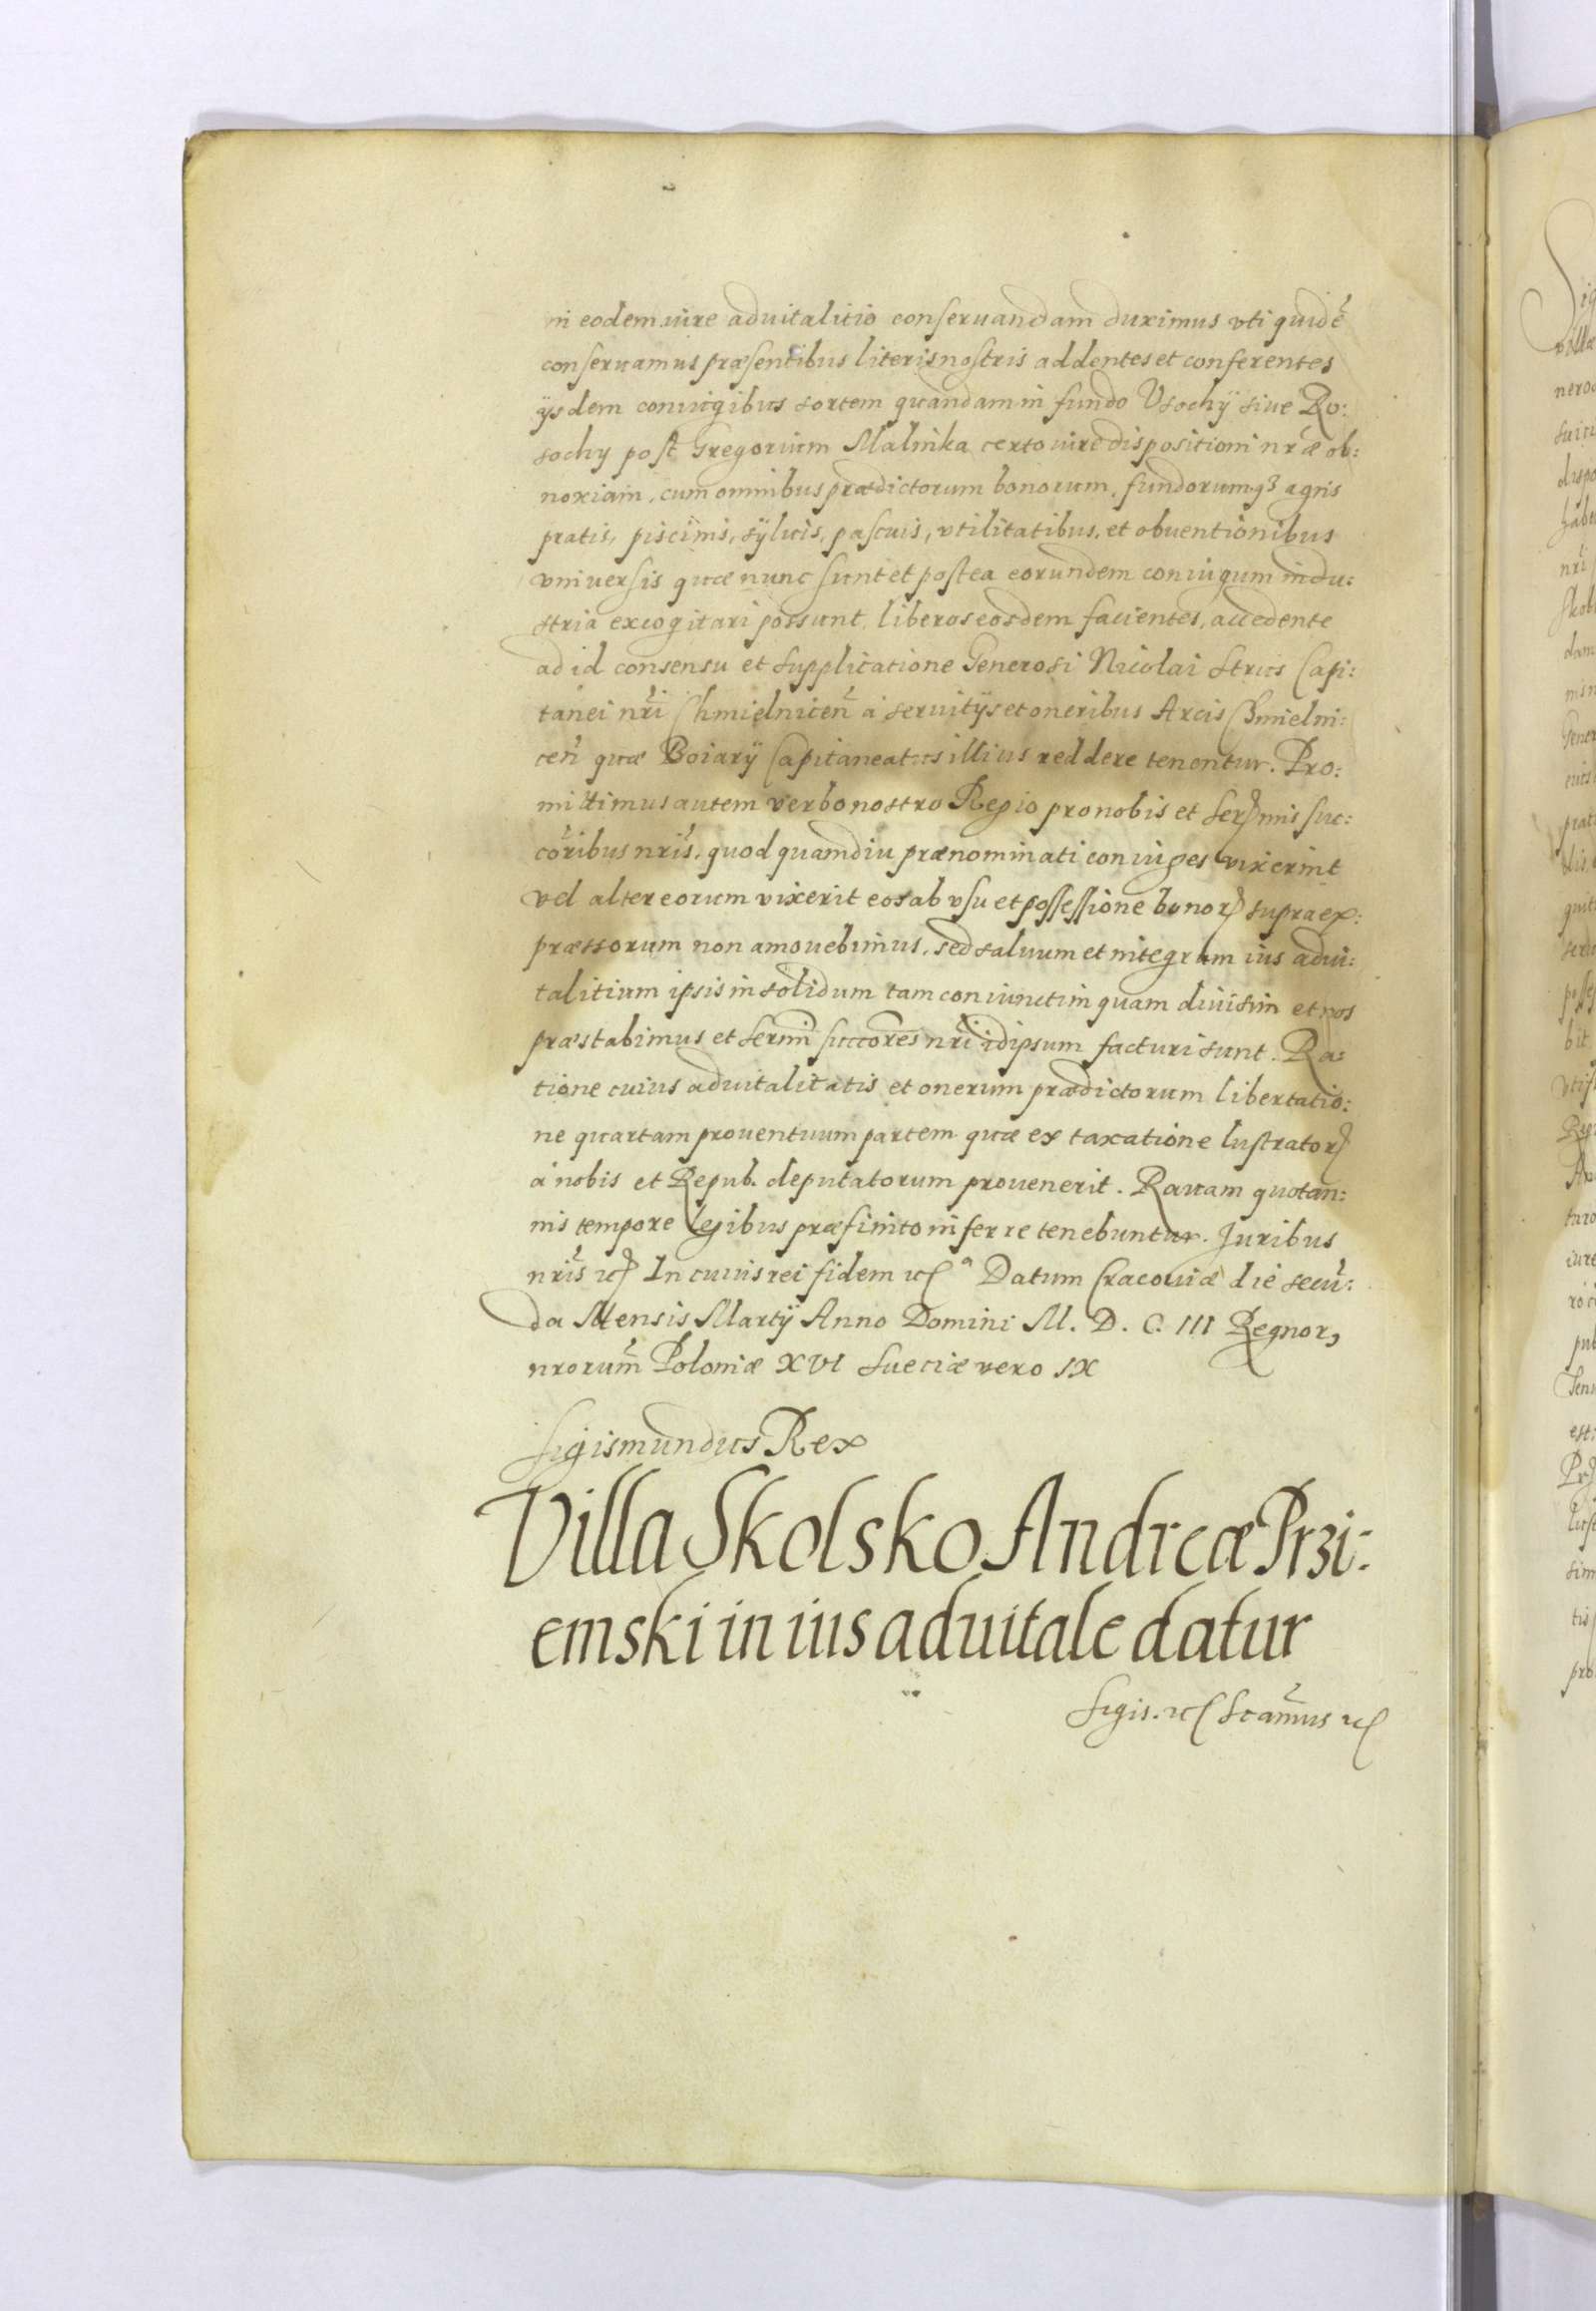 in eodem iure aduitalitio conseruandam duximus vti quidē
conseruamus præsentibus literis nostris addentes et conferentes
ijsdem coniugibus sortem quandam in fundo Vsochÿ siue Ro:
sochy post Gregorium Malinka certo iure dispositioni nr̃æ ob:
noxiam, cum omnibus prædictorum bonorum, fundorumq3 agris
pratis, piscinis, sÿluis, pascuis, vtilitatibus, et obuentionibus
vniuersis quæ nunc sunt et postea eorundem coniugum indu:
stria excogitari possunt, liberos eosdem facientes, accedente
ad id consensu et supplicatione Generosi Nicolai Strus Capi:
tanei nr̃i Chmielnicen̄ à seruitÿs et oneribus Arcis Chmielni:
cen̄ quæ Boiarÿ Capitaneatus illius reddere tenentur. Pro:
mittimus autem verbo nostro Regio pro nobis et Serꝭmis suc:
cōribus nr̃is, quod quamdiu prænominati coniuges vixerint
vel alter eorum vixerit eos ab vsu et possessione bonorꝭ supra ex:
præssorum non amouebimus, sed saluum et integrum ius adui:
talitium ipsis in solidum tam coniunctim quam diuisim et nos
præstabimus et Sermi succōres nr̃i idipsum facturi sunt. Ra:
tione cuius aduitalitatis et onerum prædictorum libertatio:
ne quartam prouentuum partem quæ ex taxatione lustratorꝭ
à nobis et Repub. deputatorum prouenerit. Rauam quotan:
nis tempore legibus præfinito inferre tenebuntur. Juribus
nr̃is ꝛcꝭ In cuius rei fidem ꝛcꝭ Datum Cracouiæ die secū:
da Mensis Martÿ Anno Domini M. D. C. III Regnor,
nrorum̄ Poloniæ XVI Sueciæ vero IX
Sigismundus Rex
Villa Skolsko Andreæ Przi:
emski in ius aduitale datur
Sigis. ꝛcꝭ Sca͞mus ꝛcꝭ